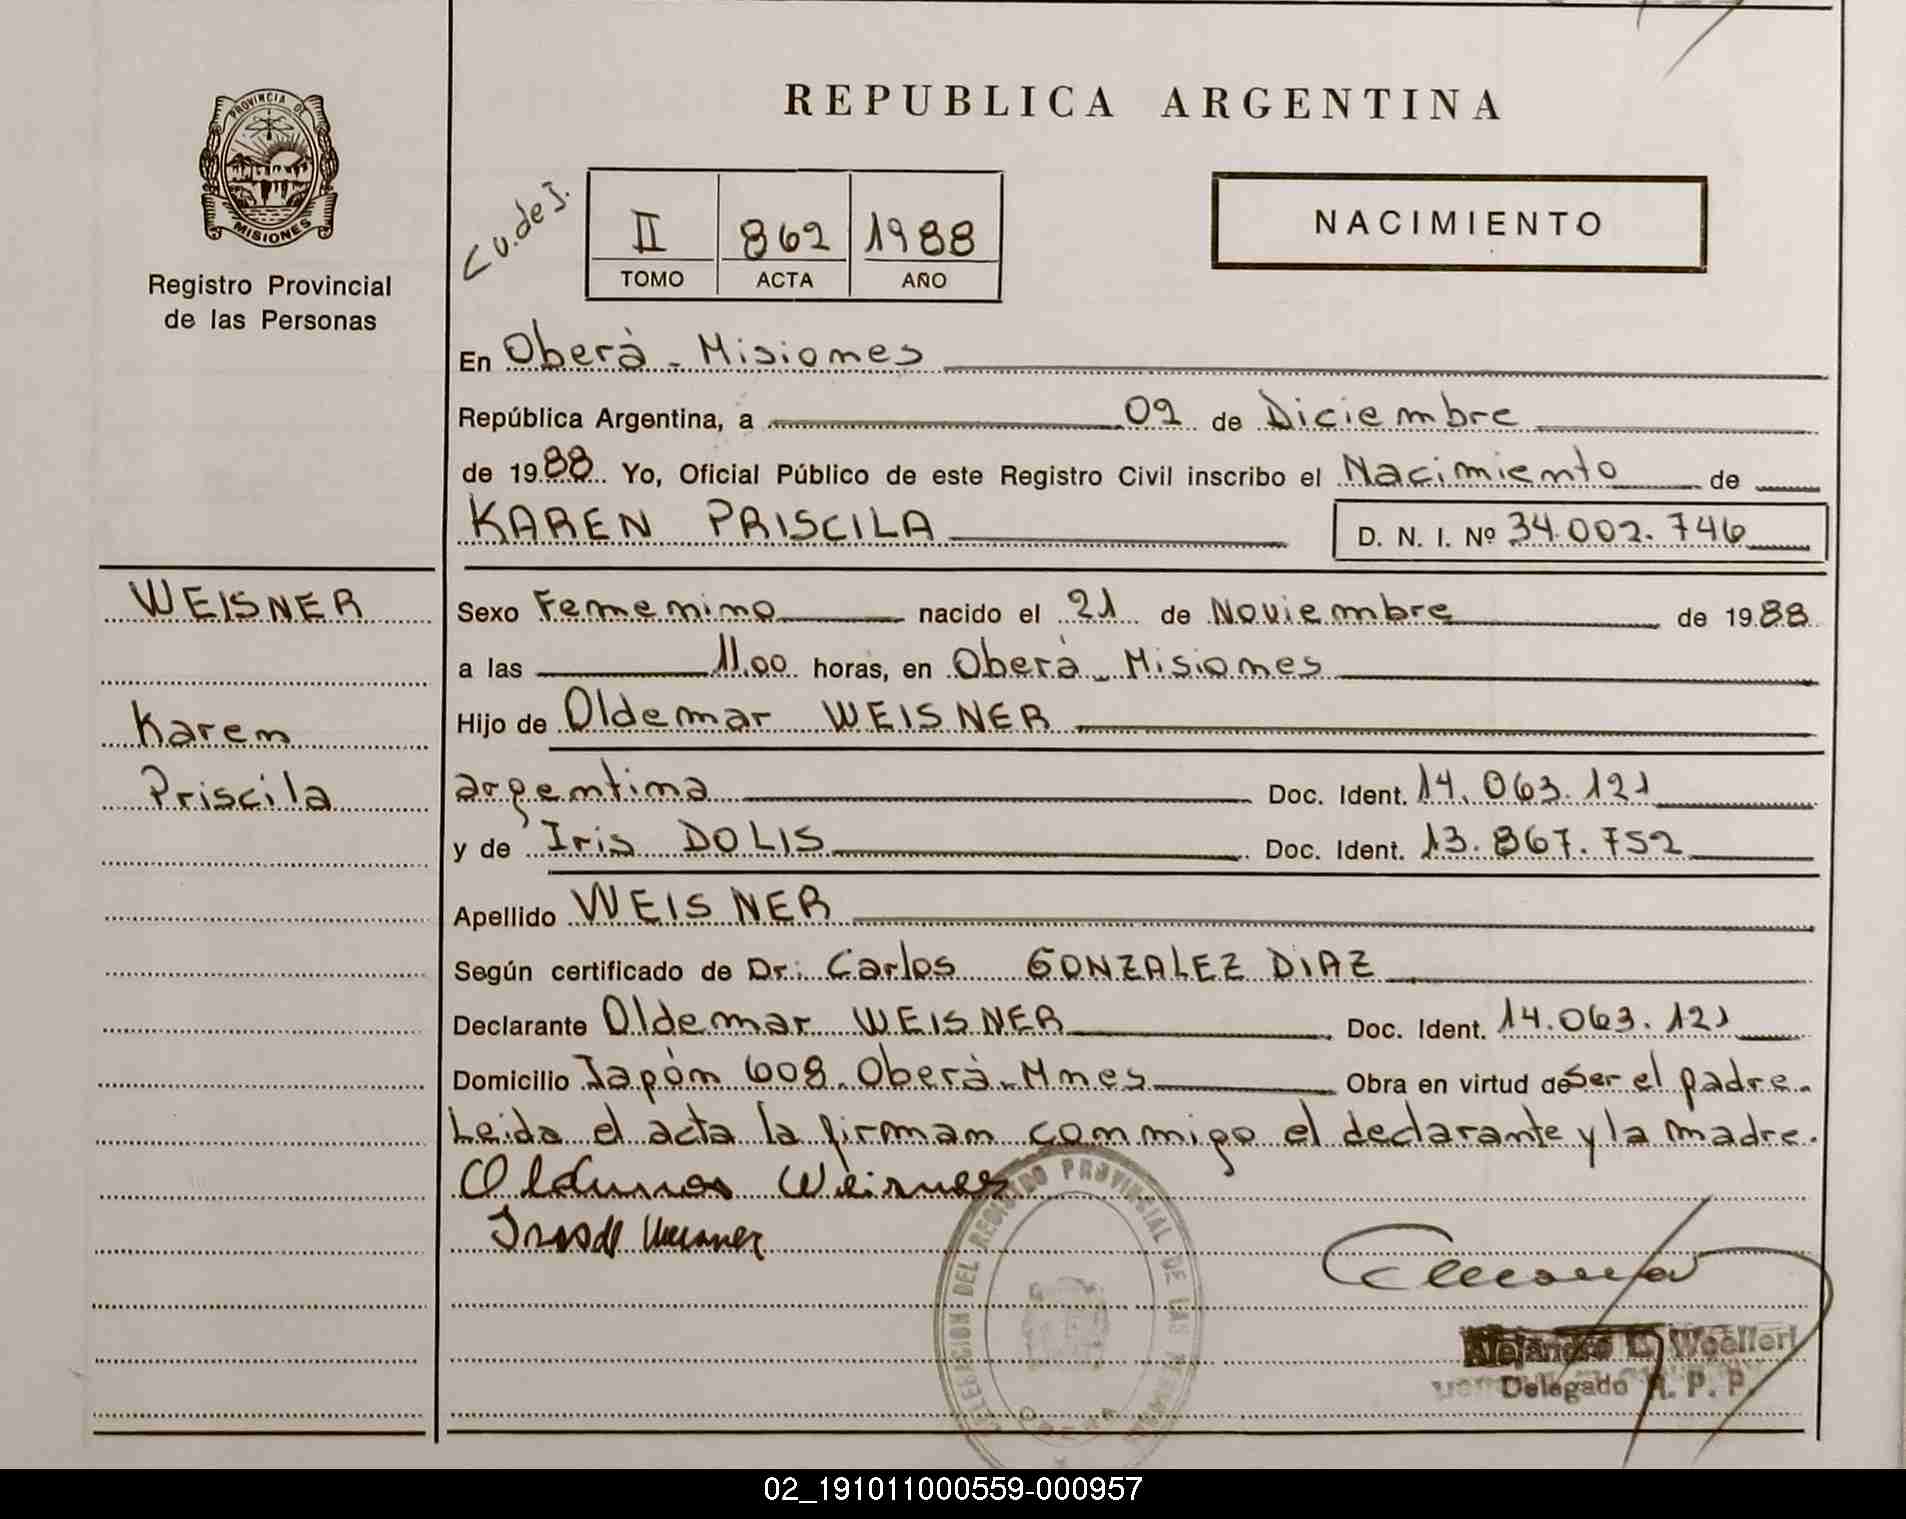 REPUBLICA ARGENTINA
PROVINCIA DE
MISIONES
Registro Provincial
de las Personas
Cu.de J.
II 862 1988
TOMO ACTA AÑO
NACIMIENTO
En Oberà - Misiones
República Argentina, a 02 de Diciembre
de 1988 Yo, Oficial Público de este Registro Civil inscribo el Nacimiento de
KAREN PRISCILA D. N. I. Nº 34.002.746
WEISNER
Karen
Priscila
Sexo Femenino nacido el 21 de Noviembre de 1988
a las 11.00 horas, en Oberà - Misiones
Hijo de Oldemar WEISNER
argentina Doc. Ident. 14.063.121
y de Iris DOLIS Doc. Ident. 13.867.752
Apellido WEISNER
Según certificado de Dr: Carlos GONZALEZ DIAZ
Declarante Oldemar WEISNER Doc. Ident. 14.063.121
Domicilio Japón 608. Oberà. Mnes Obra en virtud de ser el padre.
Leida el acta la firman conmigo el declarante y la madre.
Weisner
DELEGACION DEL REGISTRO PROVINCIAL DE LAS
OBERA
Alejandro
Delegado R. P. P.
02_191011000559-000957